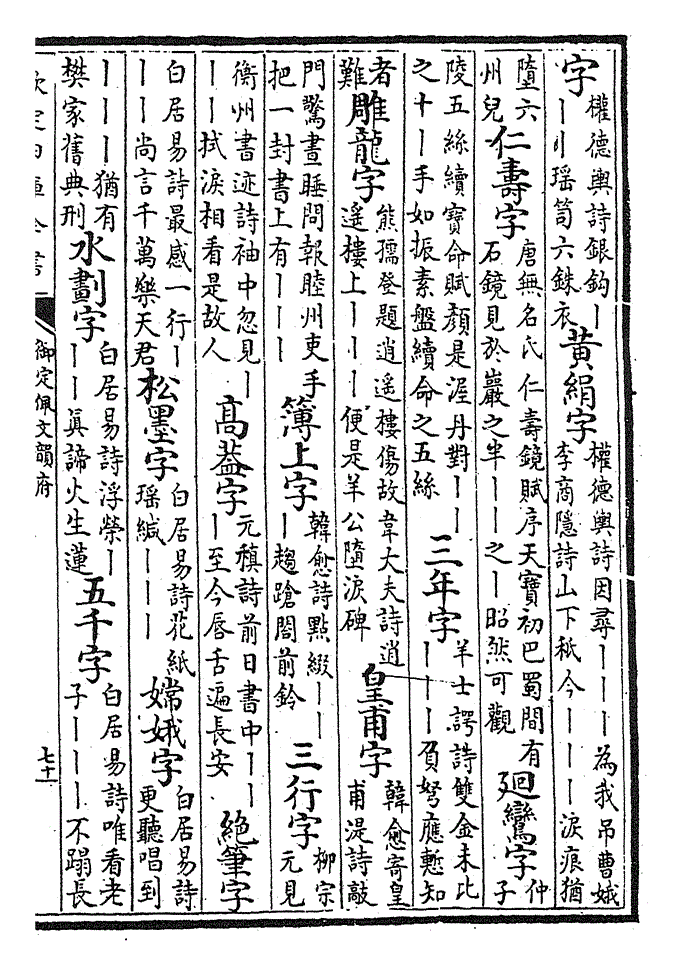 字權德輿詩銀鈎丨丨丨瑶笥六銖衣黃絹字權德輿詩因尋丨丨丨為我吊曹娥李商隱詩山下秪今丨丨丨淚痕猶
墮六州兒仁壽字唐無名氏仁壽鏡賦序天寶初巴蜀間有石鏡見於巖之半丨丨之丨昭然可觀迴鸞字仲子
陵五絲續寶命賦顏是渥丹對丨丨之十丨手如振素盤續命之五絲三年字羊士諤詩雙金未比丨丨丨負弩應慙知
者難雕龍字熊孺登題逍遙樓傷故韋大夫詩逍遙樓上丨丨丨便是羊公墮淚碑皇甫字韓愈寄皇甫湜詩敲
門驚晝睡問報睦州吏手把一封書上有丨丨丨簿上字韓愈詩點綴丨丨丨趨蹌閤前鈴三行字柳宗元見
衡州書迹詩袖中忽見丨丨丨拭淚相看是故人高葢字元稹詩前日書中丨丨丨至今唇舌遍長安絶筆字
白居易詩最感一行丨丨丨尚言千萬樂天君松墨字白居易詩花紙瑶緘丨丨丨嫦娥字白居易詩更聽唱到
丨丨丨猶有樊家舊典刑水劃字白居易詩浮榮丨丨丨真諦火生蓮五千字白居易詩唯看老子丨丨丨不蹋長
欽定四庫全書
御定佩文韻府
七十